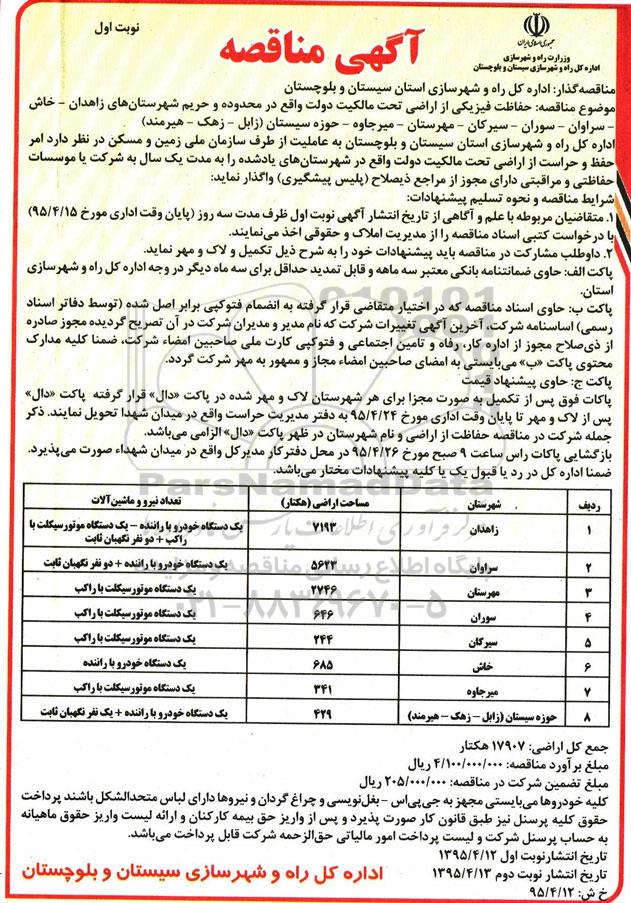 نوبت اول
جمهوری اسلامی ایران
وزارت راه و شهرسازی
اداره کل راه و شهرسازی سیستان و بلوچستان
آگهی مناقصه
مناقصه‌گذار: اداره کل راه و شهرسازی استان سیستان و بلوچستان
موضوع مناقصه: حفاظت فیزیکی از اراضی تحت مالکیت دولت واقع در محدوده و حریم شهرستان‌های زاهدان - خاش
- سراوان - سوران - سیرکان - مهرستان - میرجاوه - حوزه سیستان (زابل - زهک - هیرمند)
اداره کل راه و شهرسازی استان سیستان و بلوچستان به عاملیت از طرف سازمان ملی زمین و مسکن در نظر دارد امر
حفظ و حراست از اراضی تحت مالکیت دولت واقع در شهرستان‌های یادشده را به مدت یک سال به شرکت یا موسسات
حفاظتی و مراقبتی دارای مجوز از مراجع ذیصلاح (پلیس پیشگیری) واگذار نماید:
شرایط مناقصه و نحوه تسلیم پیشنهادات:
۱. متقاضیان مربوطه با علم و آگاهی از تاریخ انتشار آگهی نوبت اول ظرف مدت سه روز (پایان وقت اداری مورخ ۹۵/۴/۱۵)
با درخواست کتبی اسناد مناقصه را از مدیریت املاک و حقوقی اخذ می‌نمایند.
۲. داوطلب مشارکت در مناقصه باید پیشنهادات خود را به شرح ذیل تکمیل و لاک و مهر نماید.
پاکت الف: حاوی ضمانتنامه بانکی معتبر سه ماهه و قابل تمدید حداقل برای سه ماه دیگر در وجه اداره کل راه و شهرسازی
استان.
پاکت ب: حاوی اسناد مناقصه که در اختیار متقاضی قرار گرفته به انضمام فتوکپی برابر اصل شده (توسط دفاتر اسناد
رسمی) اساسنامه شرکت، آخرین آگهی تغییرات شرکت که نام مدیر و مدیران شرکت در آن تصریح گردیده مجوز صادره
از ذی‌صلاح مجوز از اداره کار، رفاه و تامین اجتماعی و فتوکپی کارت ملی صاحبین امضاء شرکت، ضمنا کلیه مدارک
محتوی پاکت «ب» می‌بایستی به امضای صاحبین امضاء مجاز و ممهور به مهر شرکت گردد.
پاکت ج: حاوی پیشنهاد قیمت
پاکات فوق پس از تکمیل به صورت مجزا برای هر شهرستان لاک و مهر شده در پاکت «دال» قرار گرفته پاکت «دال»
پس از لاک و مهر تا پایان وقت اداری مورخ ۹۵/۴/۲۴ به دفتر مدیریت حراست واقع در میدان شهدا تحویل نمایند. ذکر
جمله شرکت در مناقصه حفاظت از اراضی و نام شهرستان در ظهر پاکت «دال» الزامی می‌باشد.
بازگشایی پاکات راس ساعت ۹ صبح مورخ ۹۵/۴/۲۶ در محل دفترکار مدیرکل واقع در میدان شهداء صورت می‌پذیرد.
ضمنا اداره کل در رد یا قبول یک یا کلیه پیشنهادات مختار می‌باشد.
ردیف شهرستان مساحت اراضی (هکتار) تعداد نیرو و ماشین‌آلات
۱ زاهدان ۷۱۹۳ یک دستگاه خودرو با راننده - یک دستگاه موتورسیکلت با
راکب + دو نفر نگهبان ثابت
۲ سراوان ۵۶۲۳ یک دستگاه خودرو با راننده + دو نفر نگهبان ثابت
۳ مهرستان ۲۷۴۶ یک دستگاه موتورسیکلت با راکب
۴ سوران ۶۴۶ یک دستگاه موتورسیکلت با راکب
۵ سیرکان ۲۴۴ یک دستگاه موتورسیکلت با راکب
۶ خاش ۶۸۵ یک دستگاه خودرو با راننده
۷ میرجاوه ۳۴۱ یک دستگاه موتورسیکلت با راکب
۸ حوزه سیستان (زابل - زهک - هیرمند) ۴۲۹ یک دستگاه خودرو با راننده + یک نفر نگهبان ثابت
جمع کل اراضی: ۱۷۹۰۷ هکتار
مبلغ برآورد مناقصه: ۴/۱۰۰/۰۰۰/۰۰۰ ریال
مبلغ تضمین شرکت در مناقصه: ۲۰۵/۰۰۰/۰۰۰ ریال
کلیه خودروها می‌بایستی مجهز به جی‌پی‌اس - بغل‌نویسی و چراغ گردان و نیروها دارای لباس متحدالشکل باشند پرداخت
حقوق کلیه پرسنل نیز طبق قانون کار صورت پذیرد و پس از واریز حق بیمه کارکنان و ارائه لیست واریز حقوق ماهیانه
به حساب پرسنل شرکت و لیست پرداخت امور مالیاتی حق‌الزحمه شرکت قابل پرداخت می‌باشد.
تاریخ انتشارنوبت اول ۱۳۹۵/۴/۱۲
تاریخ انتشار نوبت دوم ۱۳۹۵/۴/۱۳
خ ش: ۹۵/۴/۱۲
اداره کل راه و شهرسازی سیستان و بلوچستان
ParsNamadData
پایگاه اطلاع رسانی مناقصه و مزایده
۰۲۱-۸۸۳۴۹۶۷۰-۵